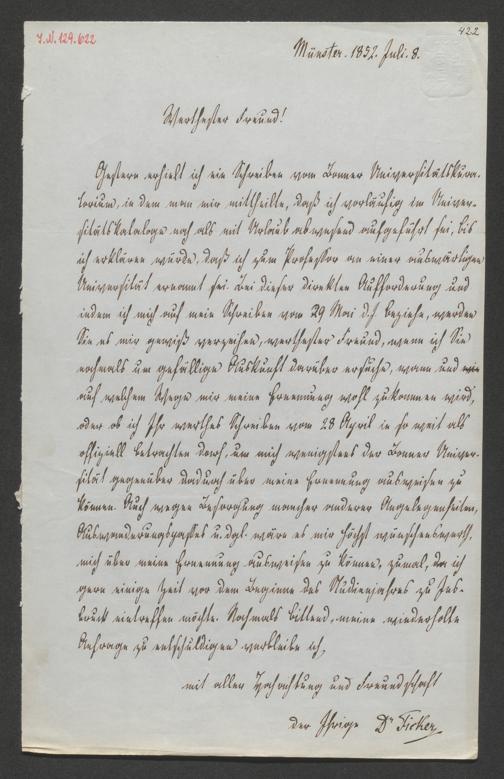 I.N. 129.622
422
Münster. 1852. Juli. 8.
Werthester Freund!
Gestern erhielt ich ein Schreiben vom Bonner Universitätskura-
torium, in dem man mir mittheilte, daß ich vorläufig im Univer-
sitätskataloge noch als mit Urlaub abwesend aufgeführt sei, bis
ich erklären würde, daß ich zum Professor an einer auswärtigen
Universität ernannt sei. Bei dieser direkten Aufforderung und
indem ich mich auf mein Schreiben vom 29 Mai d.J beziehe, werden
Sie es mir gewiß verzeihen, werthester Freund, wenn ich Sie
nochmals um gefällige Auskunft darüber ersuche, wann und wie
auf welchem Wege mir meine Ernennung wohl zukommen wird,
oder ob ich Ihr werthes Schreiben vom 28 April in so weit als
offiziell betrachten darf, um mich wenigstens der Bonner Univer-
sität gegenüber dadurch über meine Ernennung ausweisen zu
können. Auch wegen Besorgung mancher anderer Angelegenheiten,
Auswanderungspasses u. dgl. wäre es mir höchst wünschenswerth,
mich über meine Ernennung ausweisen zu können, zumal, da ich
gern einige Zeit vor dem Beginne des Studienjahres zu Ins-
bruck eintreffen möchte. Nochmals bittend, meine wiederholte
Anfrage zu entschuldigen verbleibe ich,
mit aller Hochachtung und Freundschaft
der Ihrige Dr Ficker